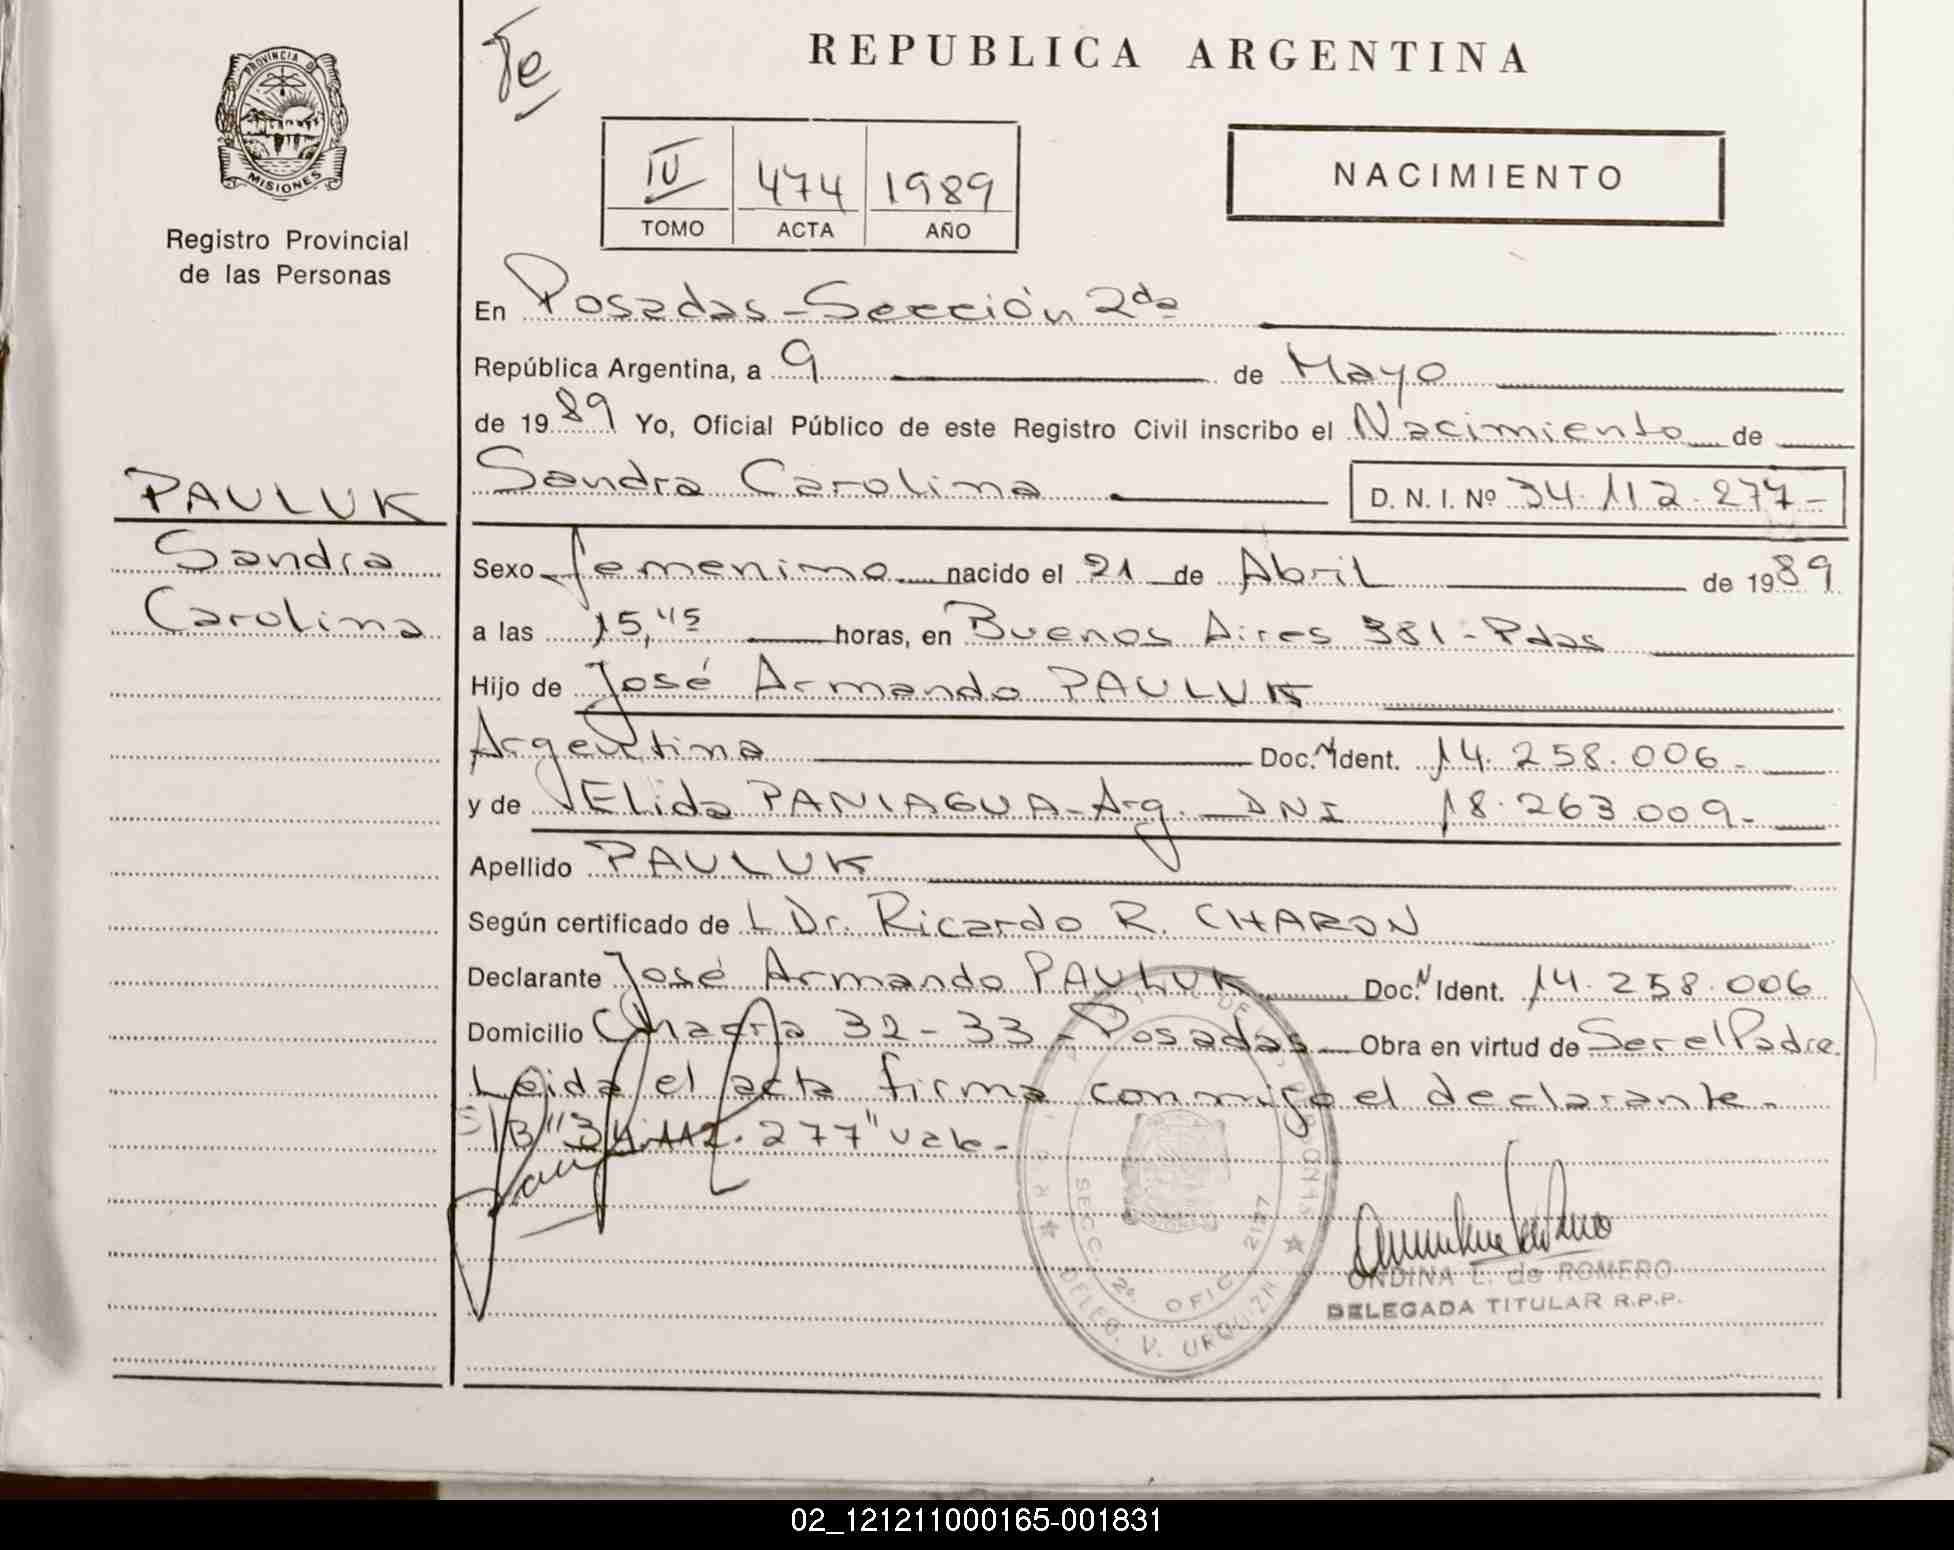 PROVINCIA D
MISIONES
Registro Provincial
de las Personas
PAULUK
Sandra
Carolina
REPUBLICA ARGENTINA
IV 474 1989
TOMO ACTA AÑO
NACIMIENTO
En Posadas - Sección 2da
República Argentina, a 9 de Mayo
de 1989 Yo, Oficial Público de este Registro Civil inscribo el Nacimiento de
Sandra Carolina D. N. I. Nº 34.112.277-
Sexo femenino nacido el 21 de Abril de 1989
a las 15,45 horas, en Buenos Aires 381 - Pdas
Hijo de José Armando PAULUK
Argentina Doc. N Ident. 14.258.006-
y de Elida PANIAGUA - Arg. - DNI 18.263.009-
Apellido PAULUK
Según certificado de L Dr. Ricardo R. CHARON
Declarante José Armando PAULUK Doc. N Ident. 14.258.006
Domicilio Chacra 32-33 - Posadas Obra en virtud de Ser el Padre
Leida el acta firma conmigo el declarante.
S/B "34.112.277" vale-
SECC. 2a. OFIC. 2137
DELEG. V. URQUIZA
ONDINA L. de ROMERO
DELEGADA TITULAR R.P.P.
02_121211000165-001831